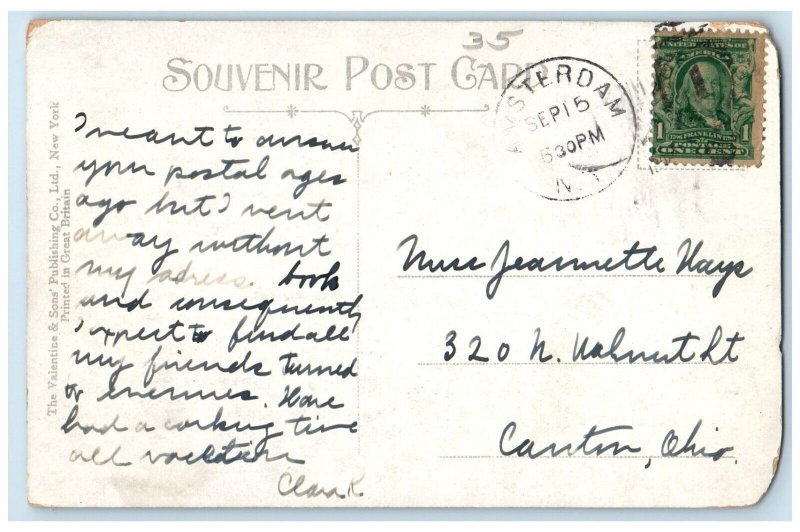 35
SOUVENIR POST CARD
AMSTERDAM
SEP 15
630PM
N.Y.
UNITED STATES OF
AMERICA
FRANKLIN
1 1
POSTAGE
ONE CENT
The Valentine & Sons' Publishing Co., Ltd., New York
Printed in Great Britain
I meant to answer
your postal ages
ago but I went
away without
my adress book
and consequently
I expect to find all
my friends turned
to enemies. Have
had a corking time
all vacation
Clara R.
Miss Jeannette Hays
320 N. Walnut St
Canton, Ohio.